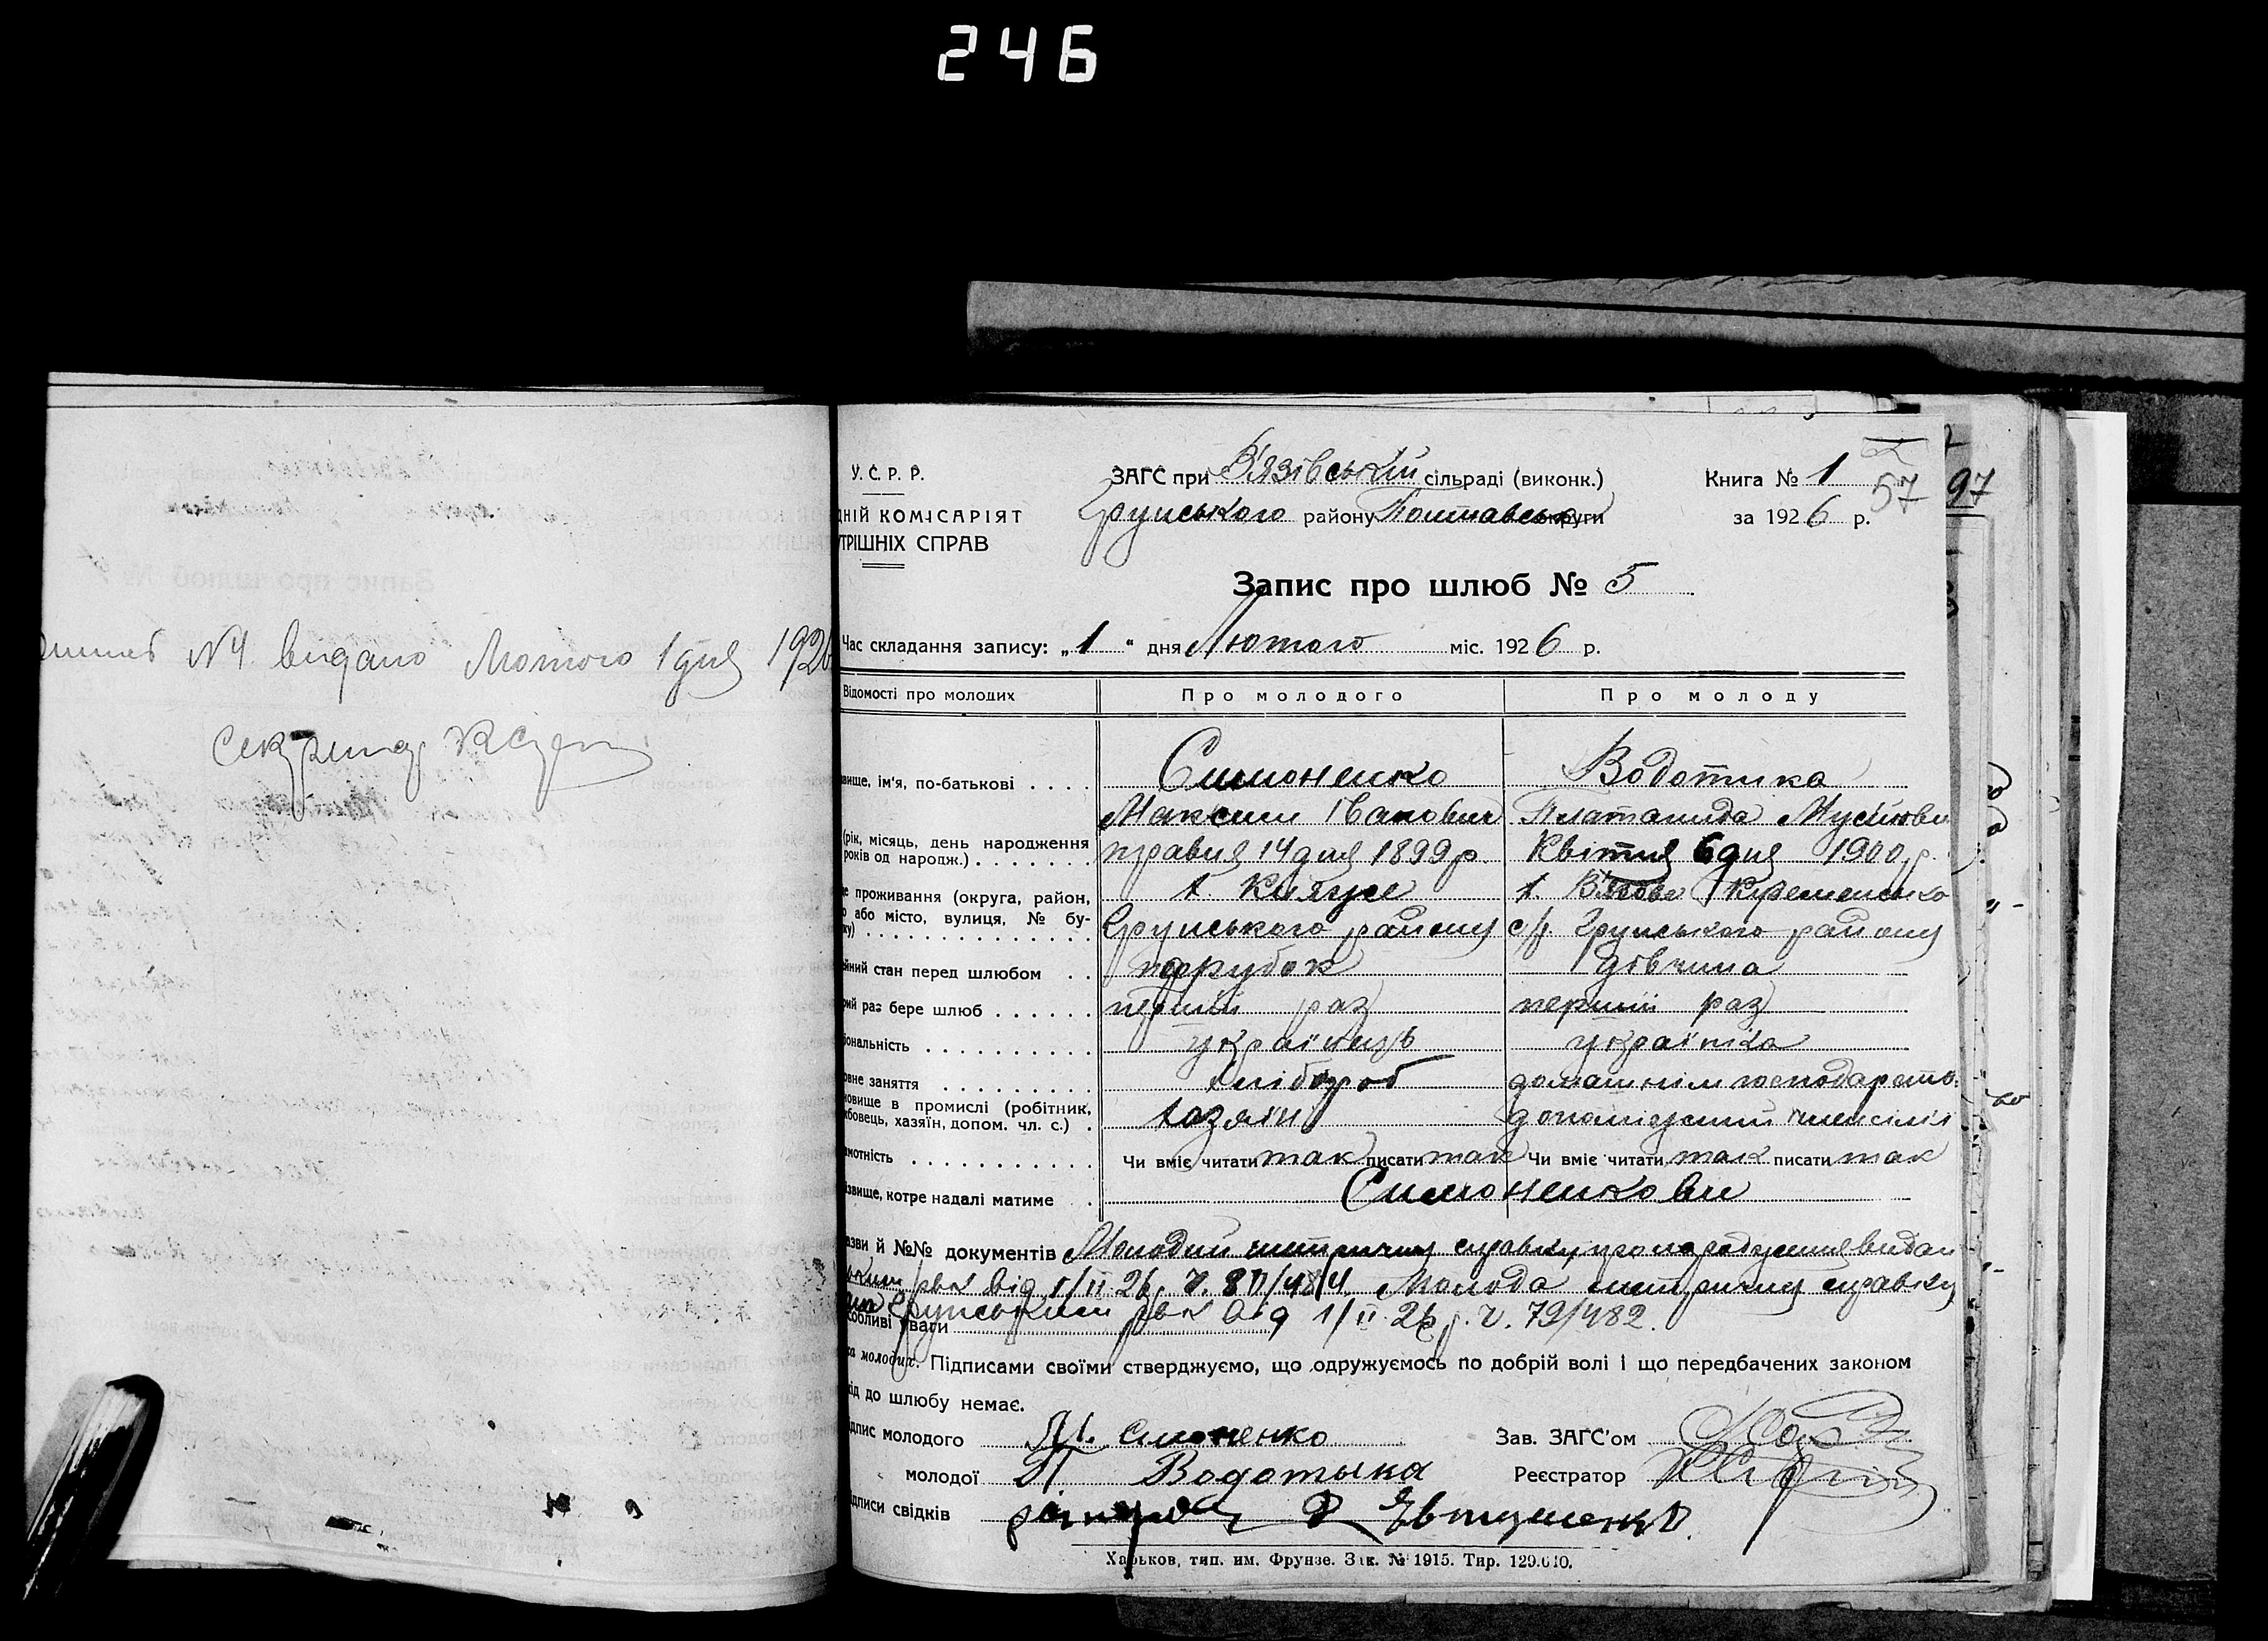 246
№ 4 видано Лютого 1 дня 1926
Секретар
У. С. Р. Р.
ДНІЙ КОМІСАРІЯТ
ТРІШНІХ СПРАВ
ЗАГС при В'язівській сільраді (виконк.)
Грунського району Полтавсько округи
Книга № 1
за 1926 р.
57
97
Запис про шлюб № 5
Час складання запису: „1" дня Лютого міс. 1926 р.
Відомості про молодих
Про молодого
Про молоду
вище, ім'я, по-батькові
Симоненко
Водотика
Максим Іванович
Платонида Мусіївн
(рік, місяць, день народження
років од народж.)
травня 14 дня 1899 р.
Квітня 6 дня 1900 р.
е проживання (округа, район,
о або місто, вулиця, № бу-
ку)
х. Княже
х. В'язове
Грунського району
с/р Грунського району
йний стан перед шлюбом
парубок
дівчина
рий раз бере шлюб
перший раз
перший раз
іональність
українець
українка
овне заняття
хлібороб
домашнім господарство
новище в промислі (робітник,
жбовець, хазяїн, допом. чл. с.)
хазяїн
допомогающий член сім'ї
амотність
Чи вміє читати так писати так
Чи вміє читати так писати так
ізвище, котре надалі матиме
Симоненкови
азви й №№ документів Молодий метричну справку про народження видан
рвк від 1/II 26 Молода метричну справку
Грунським рвк від 1/II 26 р. ч. 79/482.
собливі уваги
ка молодих. Підписами своїми стверджуємо, що одружуємось по добрій волі і що передбачених законом
код до шлюбу немає.
ідпис молодого М. Симоненко
Зав. ЗАГС'ом
молодої П Водотыка
Реєстратор
ідписи свідків
Евтушенко
Харьков, тип. им. Фрунзе. Зак. № 1915. Тир. 129.010.